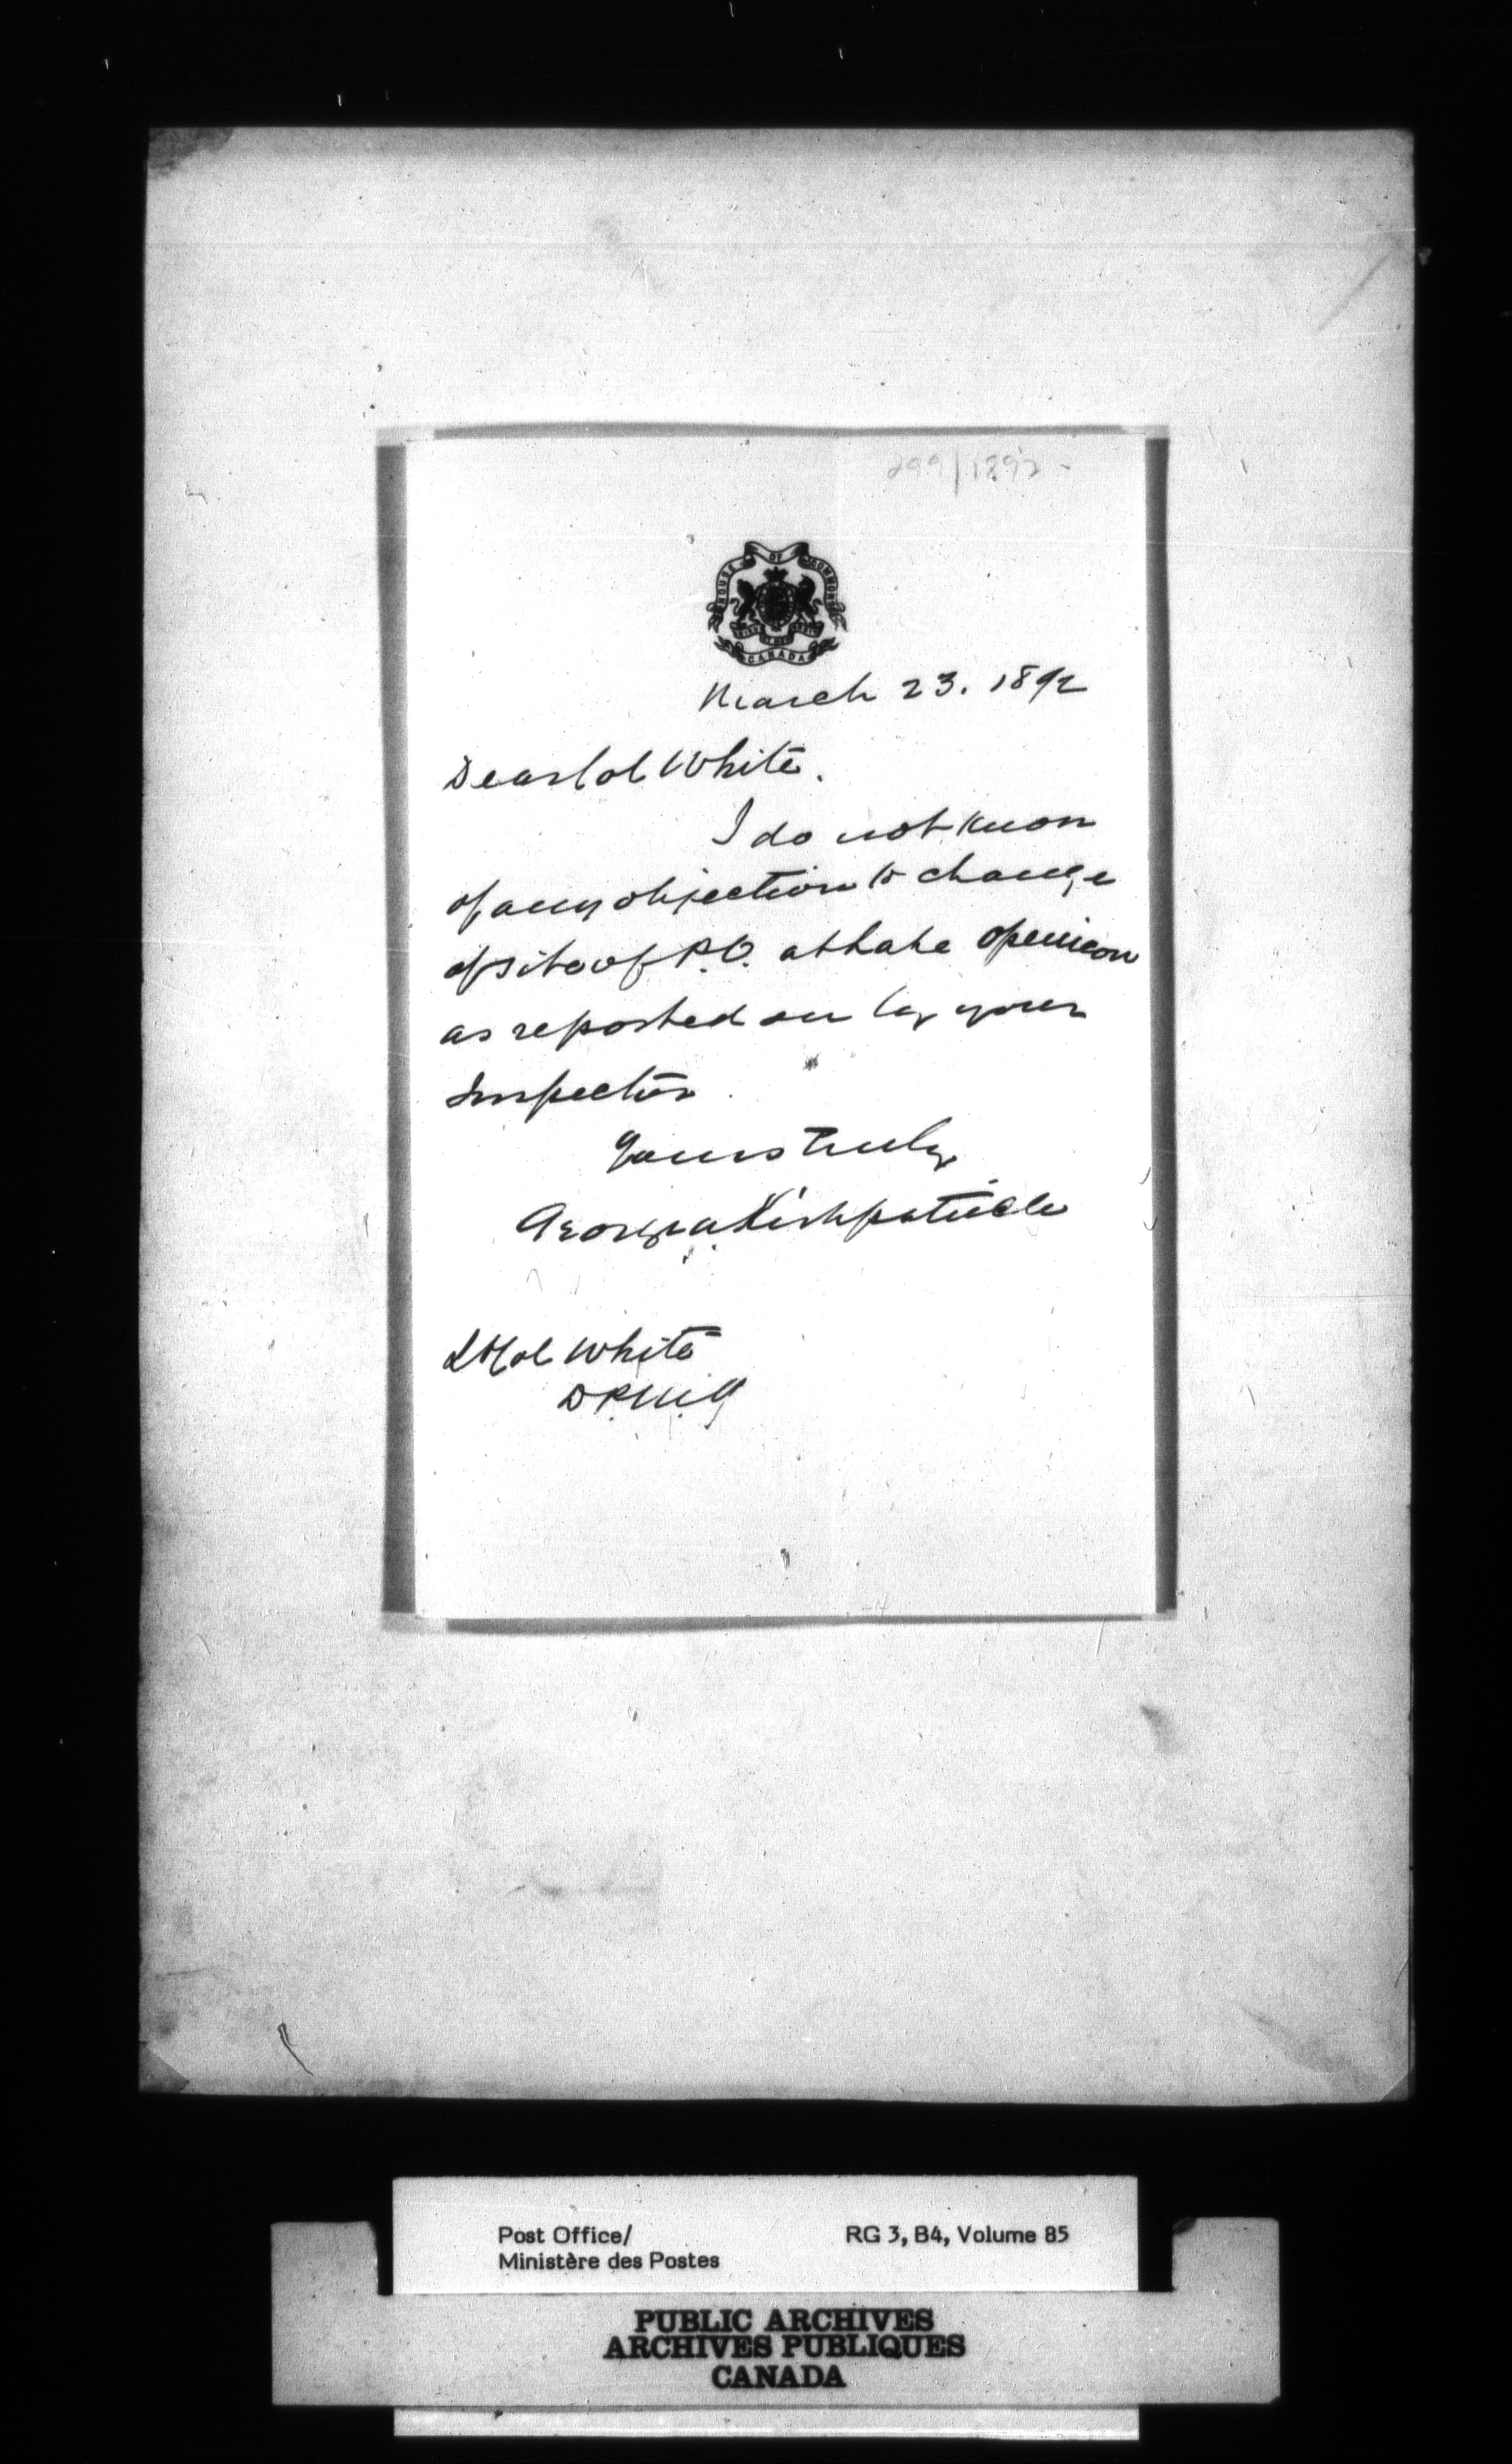 299/1892-
HOUSE OF COMMONS
CANADA
March 23. 1892
Dear Col White.
I do not know
of any objection to change
of site of P.O. at Lake Opinicon
as reported on by your
Inspector.
Yours truly
George A Kirkpatrick
Lt Col White
D.P.M.G
Post Office/ RG 3, B4, Volume 85
Ministère des Postes
PUBLIC ARCHIVES
ARCHIVES PUBLIQUES
CANADA